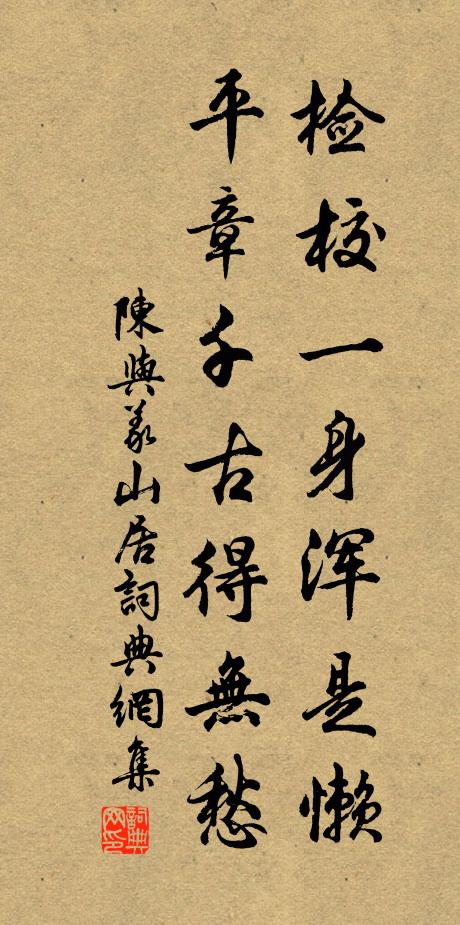 检校一身浑是懒
平章千古得無愁
陳與義山居詞典網集
詞典
网印